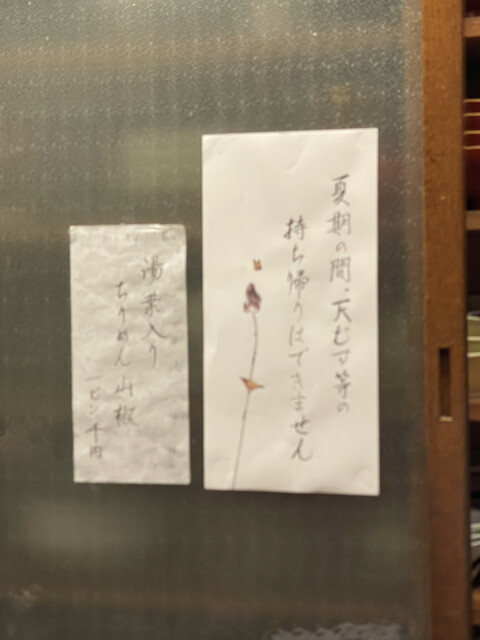 夏期の間、天むす等の
持ち帰りはできません
湯葉入り
ちりめん山椒
一ビン千円